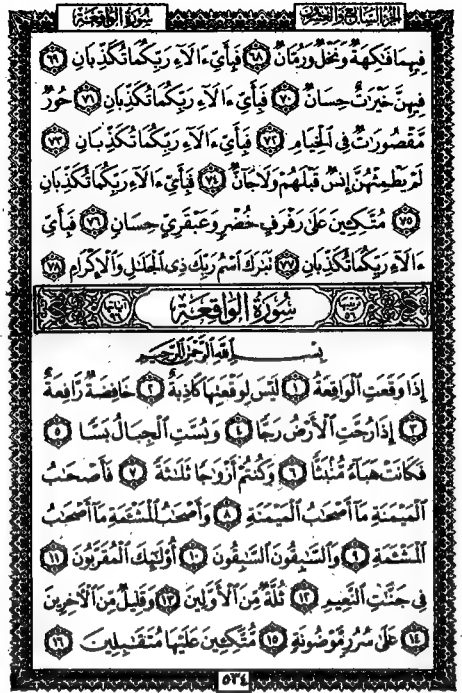 الجزء السابع والعشرون
سورة الواقعة
فِيهِمَا فَٰكِهَةٌ وَنَخْلٌ وَرُمَّانٌ ٦٨ فَبِأَيِّ ءَالَآءِ رَبِّكُمَا تُكَذِّبَانِ ٦٩
فِيهِنَّ خَيْرَٰتٌ حِسَانٌ ٧٠ فَبِأَيِّ ءَالَآءِ رَبِّكُمَا تُكَذِّبَانِ ٧١ حُورٌ
مَّقْصُورَٰتٌ فِي الْخِيَامِ ٧٢ فَبِأَيِّ ءَالَآءِ رَبِّكُمَا تُكَذِّبَانِ ٧٣
لَمْ يَطْمِثْهُنَّ إِنسٌ قَبْلَهُمْ وَلَا جَآنٌّ ٧٤ فَبِأَيِّ ءَالَآءِ رَبِّكُمَا تُكَذِّبَانِ
٧٥ مُتَّكِـِٔينَ عَلَىٰ رَفْرَفٍ خُضْرٍ وَعَبْقَرِيٍّ حِسَانٍ ٧٦ فَبِأَيِّ
ءَالَآءِ رَبِّكُمَا تُكَذِّبَانِ ٧٧ تَبَٰرَكَ اسْمُ رَبِّكَ ذِي الْجَلَٰلِ وَالْإِكْرَامِ ٧٨
سُورَةُ الوَاقِعَةِ
بِسْمِ اللَّهِ الرَّحْمَٰنِ الرَّحِيمِ
إِذَا وَقَعَتِ الْوَاقِعَةُ ١ لَيْسَ لِوَقْعَتِهَا كَاذِبَةٌ ٢ خَافِضَةٌ رَّافِعَةٌ
٣ إِذَا رُجَّتِ الْأَرْضُ رَجًّا ٤ وَبُسَّتِ الْجِبَالُ بَسًّا ٥
فَكَانَتْ هَبَآءً مُّنۢبَثًّا ٦ وَكُنتُمْ أَزْوَٰجًا ثَلَٰثَةً ٧ فَأَصْحَٰبُ
الْمَيْمَنَةِ مَآ أَصْحَٰبُ الْمَيْمَنَةِ ٨ وَأَصْحَٰبُ الْمَشْـَٔمَةِ مَآ أَصْحَٰبُ
الْمَشْـَٔمَةِ ٩ وَالسَّٰبِقُونَ السَّٰبِقُونَ ١٠ أُو۟لَٰٓئِكَ الْمُقَرَّبُونَ ١١
فِي جَنَّٰتِ النَّعِيمِ ١٢ ثُلَّةٌ مِّنَ الْأَوَّلِينَ ١٣ وَقَلِيلٌ مِّنَ الْآخِرِينَ
١٤ عَلَىٰ سُرُرٍ مَّوْضُونَةٍ ١٥ مُّتَّكِـِٔينَ عَلَيْهَا مُتَقَٰبِلِينَ ١٦
٥٣٤